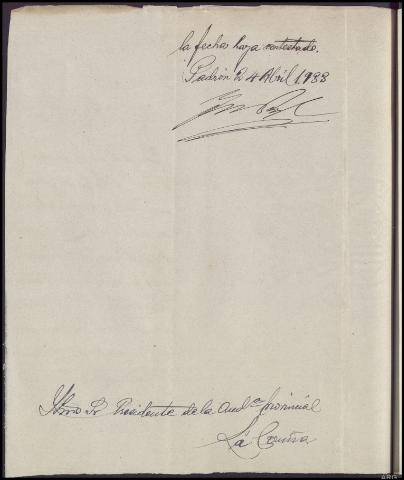 la fecha haya contestado.
Padrón 2 4 Abril 1933
Iltmo Sr Presidente de la Audª Provincial
La Coruña
ARG